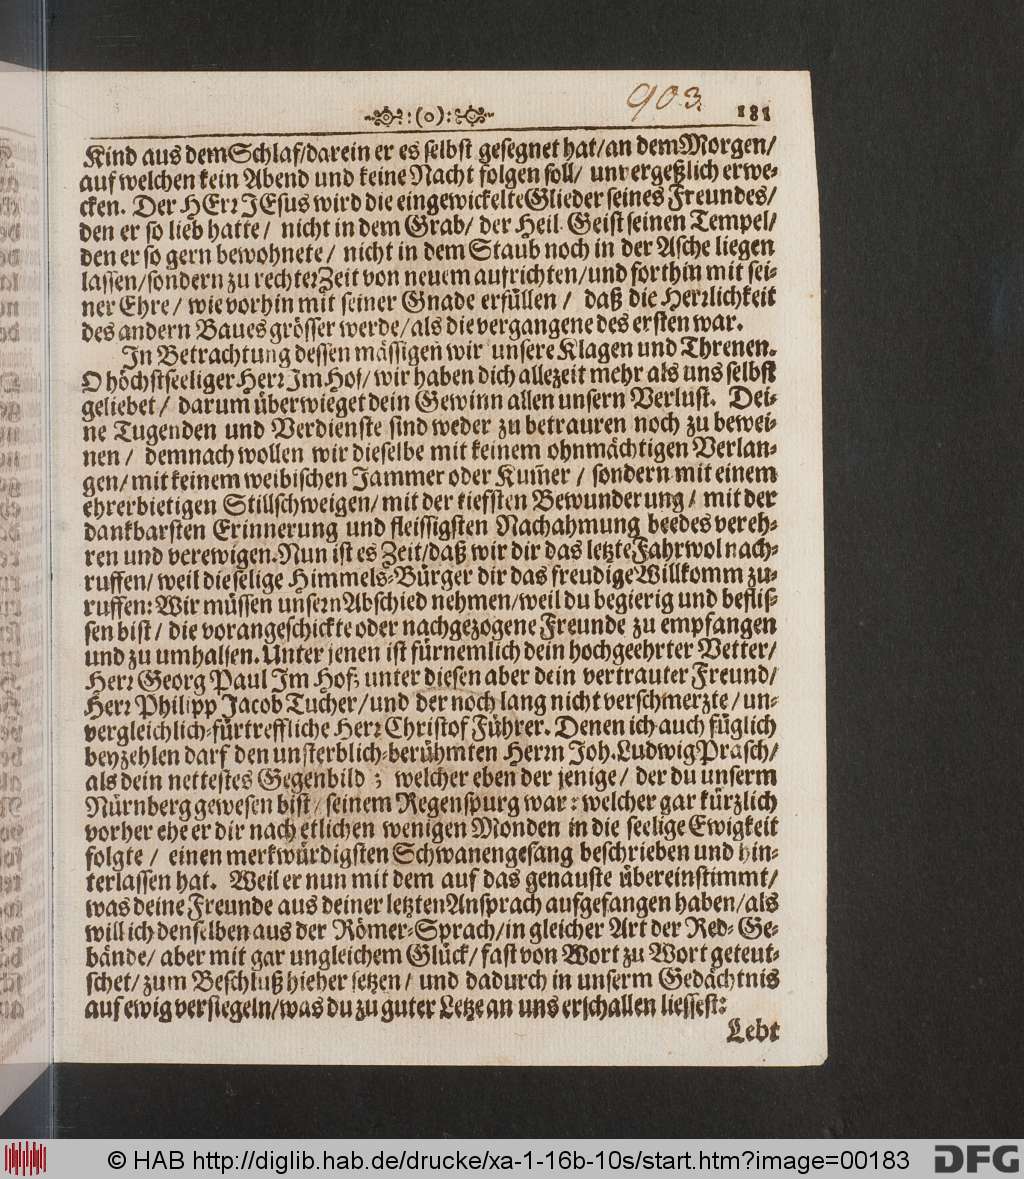 :(o):
903.
181
Kind aus dem Schlaf/darein er es selbst gesegnet hat/an dem Morgen/
auf welchen kein Abend und keine Nacht folgen soll/ unvergeßlich erwe-
cken. Der HErr JEsus wird die eingewickelte Glieder seines Freundes/
den er so lieb hatte/ nicht in dem Grab/ der Heil. Geist seinen Tempel/
den er so gern bewohnete/ nicht in dem Staub noch in der Asche liegen
lassen/sondern zu rechter Zeit von neuem aufrichten/und forthin mit sei-
ner Ehre/ wie vorhin mit seiner Gnade erfüllen/ daß die Herrlichkeit
des andern Baues grösser werde/als die vergangene des ersten war.
In Betrachtung dessen mässigen wir unsere Klagen und Threnen.
O höchstseeliger Herr Im Hof/wir haben dich allezeit mehr als uns selbst
geliebet/ darum überwieget dein Gewinn allen unsern Verlust. Dei-
ne Tugenden und Verdienste sind weder zu betrauren noch zu bewei-
nen/ demnach wollen wir dieselbe mit keinem ohnmächtigen Verlan-
gen/mit keinem weibischen Jammer oder Kum̄er/ sondern mit einem
ehrerbietigen Stillschweigen/mit der tiefsten Bewunderung/ mit der
dankbarsten Erinnerung und fleissigsten Nachahmung beedes vereh-
ren und verewigen. Nun ist es Zeit/daß wir dir das letzte Fahrwol nach-
ruffen/ weil die selige Himmels-Bürger dir das freudige Willkomm zu-
ruffen: Wir müssen unsern Abschied nehmen/weil du begierig und beflis-
sen bist/ die vorangeschickte oder nachgezogene Freunde zu empfangen
und zu umhalsen. Unter jenen ist fürnemlich dein hochgeehrter Vetter/
Herr Georg Paul Im Hof; unter diesen aber dein vertrauter Freund/
Herr Philipp Jacob Tucher/und der noch lang nicht verschmerzte/un-
vergleichlich-fürtreffliche Herr Christof Führer. Denen ich auch füglich
beyzehlen darf den unsterblich-berühmten Herrn Joh. Ludwig Prasch/
als dein nettestes Gegenbild; welcher eben der jenige/ der du unserm
Nürnberg gewesen bist/ seinem Regenspurg war: welcher gar kürzlich
vorher ehe er dir nach etlichen wenigen Monden in die seelige Ewigkeit
folgte/ einen merkwürdigsten Schwanengesang beschrieben und hin-
terlassen hat. Weil er nun mit dem auf das genauste übereinstimmt/
was deine Freunde aus deiner letzten Ansprach aufgefangen haben/als
will ich denselben aus der Römer-Sprach/in gleicher Art der Red-Ge-
bände/ aber mit gar ungleichem Glück/ fast von Wort zu Wort geteut-
schet/ zum Beschluß hieher setzen/ und dadurch in unserm Gedächtnis
auf ewig versiegeln/was du zu guter Letze an uns erschallen liessest:
Lebt
© HAB http://diglib.hab.de/drucke/xa-1-16b-10s/start.htm?image=00183
DFG